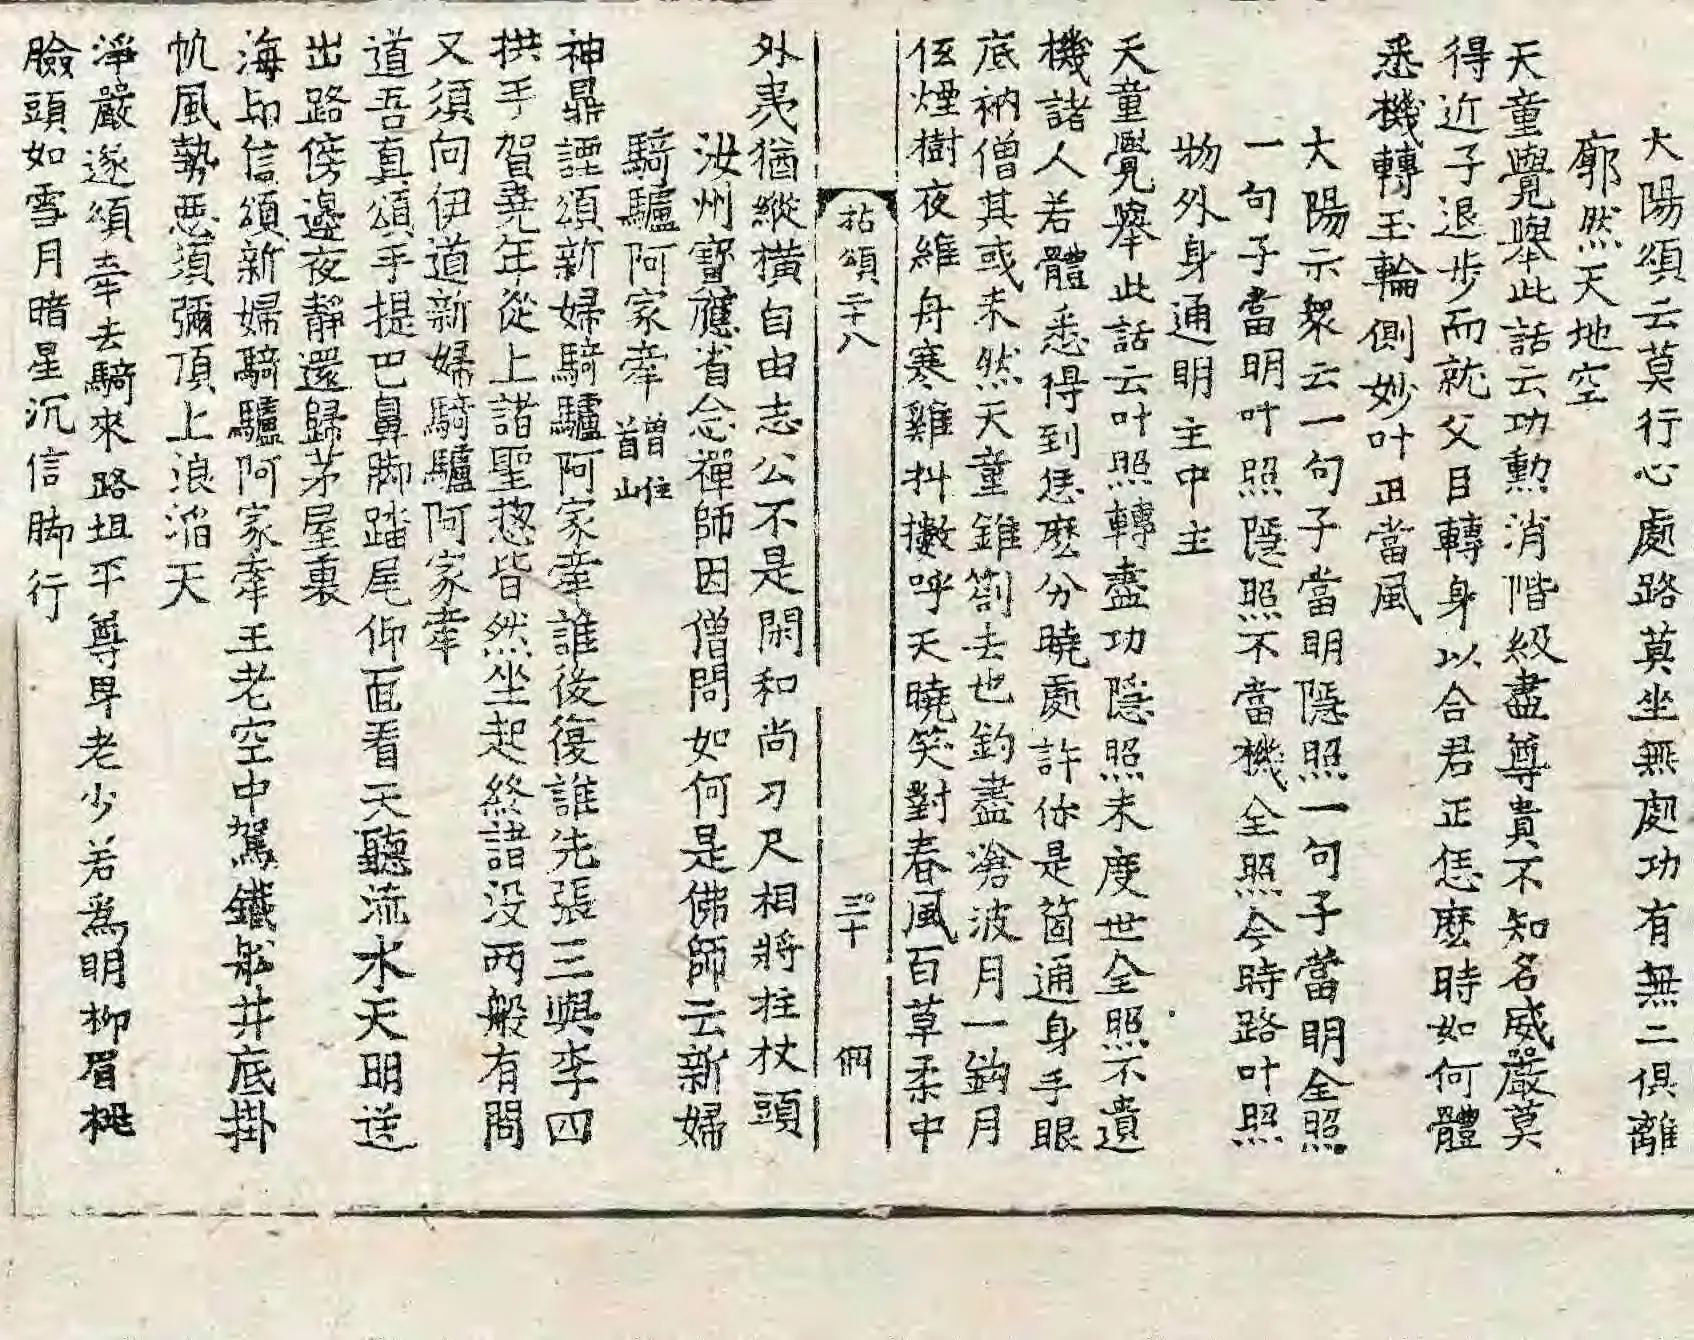 大陽頌云莫行心處路莫坐無處功有無二俱離
廓然天地空
天童覺舉此話云功勳消階級盡尊貴不知名威嚴莫
得近子退步而就父目轉身以合君正恁麽時如何體
悉機轉玉輪側妙叶正當風
大陽示衆云一句子當明隱照一句子當明全照
一句子當明叶照隱照不當機全照今時路叶照
物外身通明主中主
天童覺舉此話云叶照轉盡功隱照未度世全照不遺
機諸人若體悉得到恁麽分曉處許你是箇通身手眼
底衲僧其或未然天童錐劄去也釣盡滄波月一鈎月
伭煙樹夜維舟寒雞抖擻呼天曉笑對春風百草柔中
拈頌二十八 三十 倜
外夷猶縱橫自由志公不是閑和尚刀尺相將柱杖頭
汝州寶應省念禪師因僧問如何是佛師云新婦
騎驢阿家牽 曾住首山
神鼎諲頌新婦騎驢阿家牽誰後復誰先張三與李四
拱手賀堯年從上諸聖揔皆然坐起終諸没兩般有問
又須向伊道新婦騎驢阿家牽
道吾真頌手提巴鼻脚踏尾仰面看天聽流水天明送
出路傍邊夜靜還歸茅屋裏
海印信頌新婦騎驢阿家牽王老空中駕鐵船井底掛
帆風勢惡須彌頂上浪滔天
淨嚴遂頌牽去騎來路坦平尊卑老少若爲明柳眉桃
臉頭如雪月暗星沉信脚行